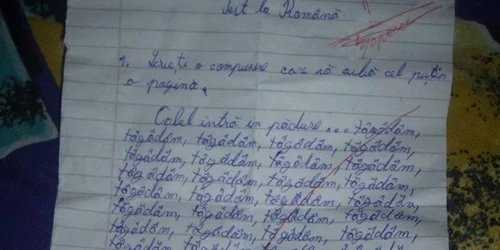 Test la Română.
1. Scrieți o compunere care să aibă cel puțin
o pagină.
Calul intră în pădure...tăgădâm,
tăgădâm, tăgădâm, tăgădâm, tăgădâm,
tăgădâm, tăgădâm, tăgădâm, tăgădâm,
tăgădâm, tăgădâm, tăgădâm, tăgădâm,
tăgădâm, tăgădâm, tăgădâm, tăgădâm,
tăgădâm, tăgădâm, tăgădâm, tăgădâm,
tăgădâm, tăgădâm, tăgădâm, tăgădâm,
tăgădâm, tăgădâm, tăgădâm, tăgădâm,